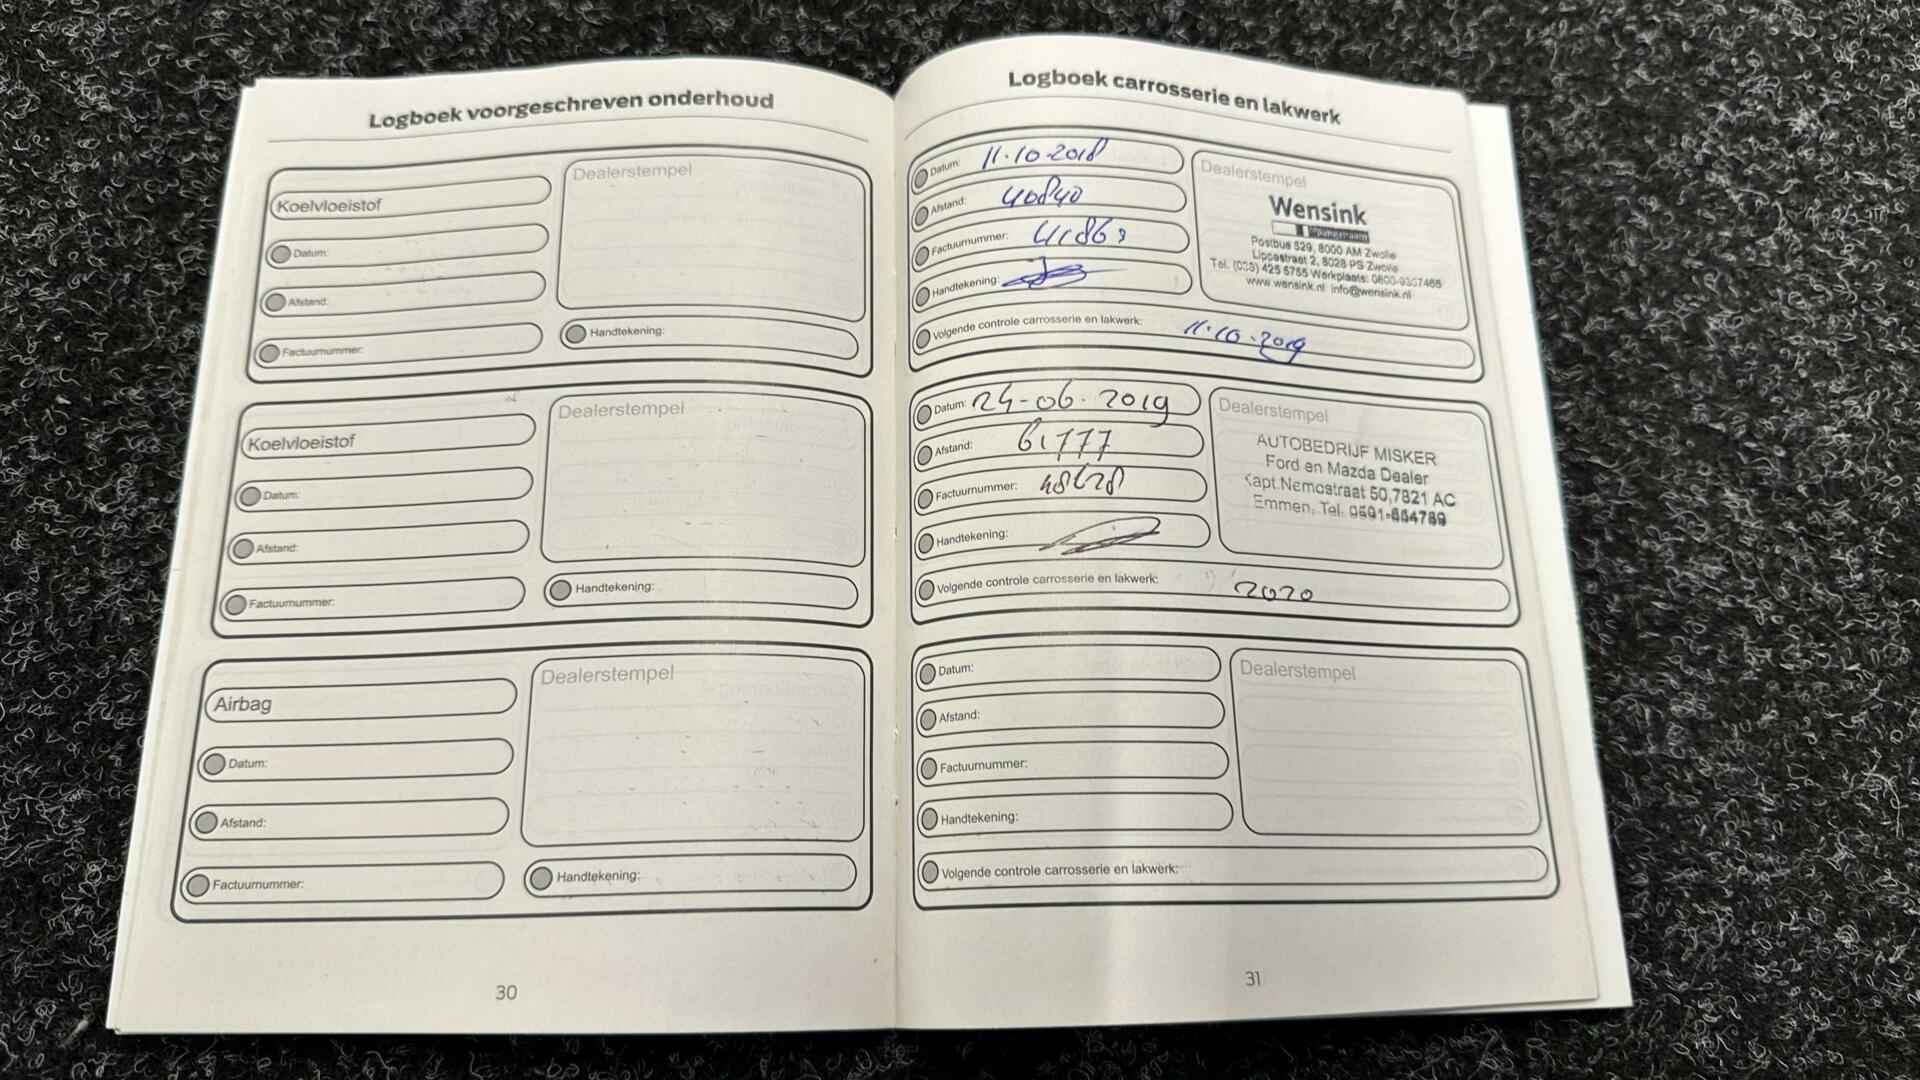 Logboek voorgeschreven onderhoud
Koelvloeistof
Dealerstempel
Datum:
Afstand:
Factuurnummer:
Handtekening:
Koelvloeistof
Dealerstempel
Datum:
Afstand:
Factuurnummer:
Handtekening:
Airbag
Dealerstempel
Datum:
Afstand:
Factuurnummer:
Handtekening:
30
Logboek carrosserie en lakwerk
Datum: 11-10-2018
Afstand: 40840
Factuurnummer:
Handtekening:
Dealerstempel
Wensink
Postbus 529, 8000 AM Zwolle
Lippestraat 2, 8028 PS Zwolle
Tel. (038) 425 5755 Werkplaats:
www.wensink.nl info@wensink.nl
Volgende controle carrosserie en lakwerk: 11-10-2019
Datum: 24-06-2019
Afstand: 61777
Factuurnummer:
Handtekening:
Dealerstempel
AUTOBEDRIJF MISKER
Ford en Mazda Dealer
Kapt.Nemostraat 50,7821 AC
Emmen, Tel.
Volgende controle carrosserie en lakwerk: 2020
Datum:
Afstand:
Factuurnummer:
Handtekening:
Dealerstempel
Volgende controle carrosserie en lakwerk:
31